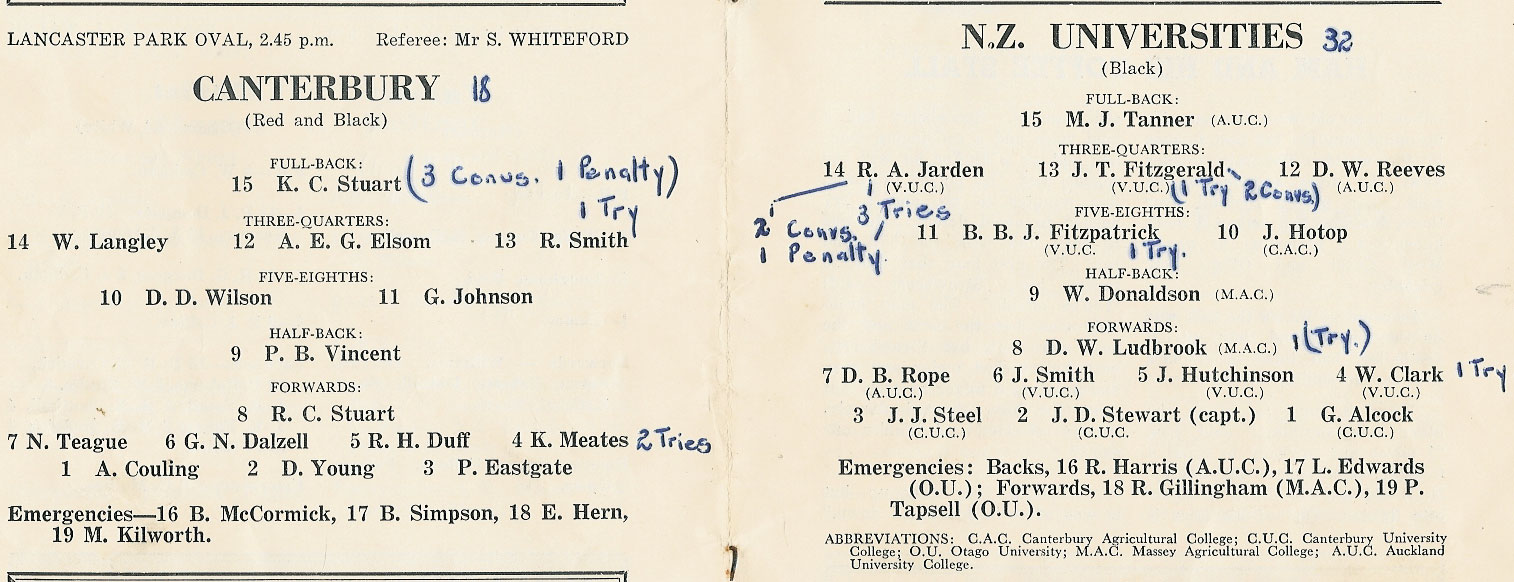 LANCASTER PARK OVAL, 2.45 p.m. Referee: Mr S. WHITEFORD
CANTERBURY 18
(Red and Black)
FULL-BACK:
15 K. C. Stuart (3 Convs. 1 Penalty)
1 Try
THREE-QUARTERS:
14 W. Langley 12 A. E. G. Elsom 13 R. Smith
FIVE-EIGHTHS:
10 D. D. Wilson 11 G. Johnson
HALF-BACK:
9 P. B. Vincent
FORWARDS:
8 R. C. Stuart
7 N. Teague 6 G. N. Dalzell 5 R. H. Duff 4 K. Meates 2 Tries
1 A. Couling 2 D. Young 3 P. Eastgate
Emergencies—16 B. McCormick, 17 B. Simpson, 18 E. Hern,
19 M. Kilworth.
N.Z. UNIVERSITIES 32
(Black)
FULL-BACK:
15 M. J. Tanner (A.U.C.)
THREE-QUARTERS:
14 R. A. Jarden 13 J. T. Fitzgerald 12 D. W. Reeves
(V.U.C.) (V.U.C.) (1 Try 2 Convs.) (A.U.C.)
3 Tries
2 Convs.
1 Penalty.
FIVE-EIGHTHS:
11 B. B. J. Fitzpatrick 10 J. Hotop
(V.U.C. 1 Try. (C.A.C.)
HALF-BACK:
9 W. Donaldson (M.A.C.)
FORWARDS:
8 D. W. Ludbrook (M.A.C.) 1 (Try.)
7 D. B. Rope 6 J. Smith 5 J. Hutchinson 4 W. Clark 1 Try
(A.U.C.) (V.U.C.) (V.U.C.) (V.U.C.)
3 J. J. Steel 2 J. D. Stewart (capt.) 1 G. Alcock
(C.U.C.) (C.U.C. (C.U.C.)
Emergencies: Backs, 16 R. Harris (A.U.C.), 17 L. Edwards
(O.U.); Forwards, 18 R. Gillingham (M.A.C.), 19 P.
Tapsell (O.U.).
ABBREVIATIONS: C.A.C. Canterbury Agricultural College; C.U.C. Canterbury University
College; O.U. Otago University; M.A.C. Massey Agricultural College; A.U.C. Auckland
University College.